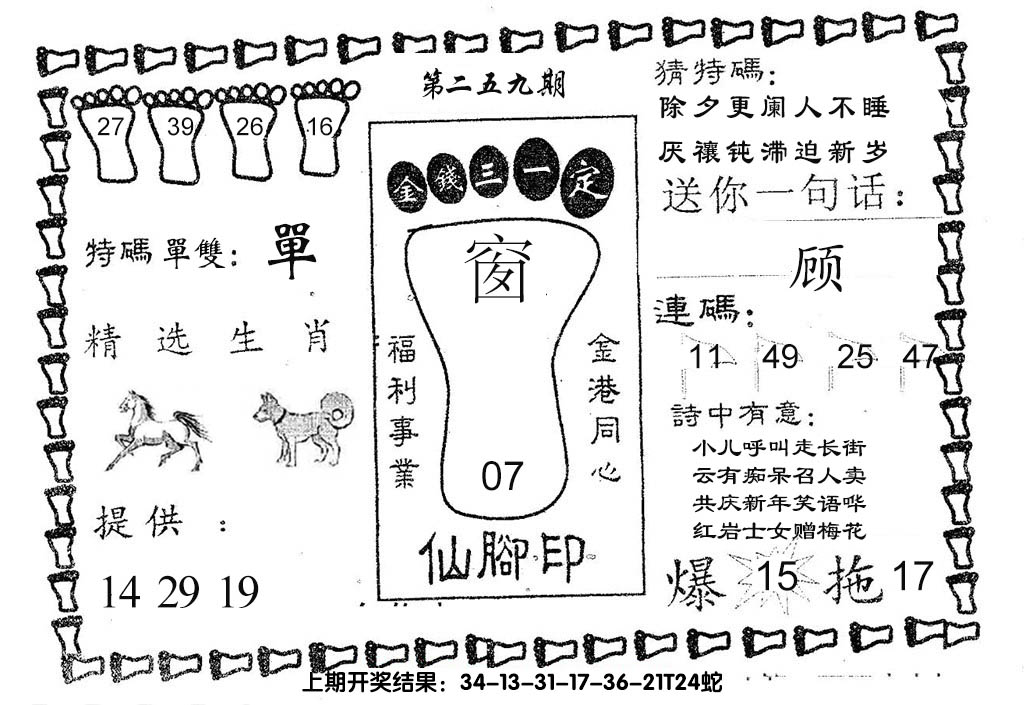 第二五九期
27 39 26 16
特碼單雙：單
精选生肖
提供：
14 29 19
金錢三一定
窗
福利事業
金港同心
07
仙腳印
猜特碼：
除夕更阑人不睡
厌禳钝滞迫新岁
送你一句话：
顾
連碼：
11 49 25 47
詩中有意：
小儿呼叫走长街
云有痴呆召人卖
共庆新年笑语哗
红岩士女赠梅花
爆 15 拖 17
上期开奖结果：34-13-31-17-36-21T24蛇